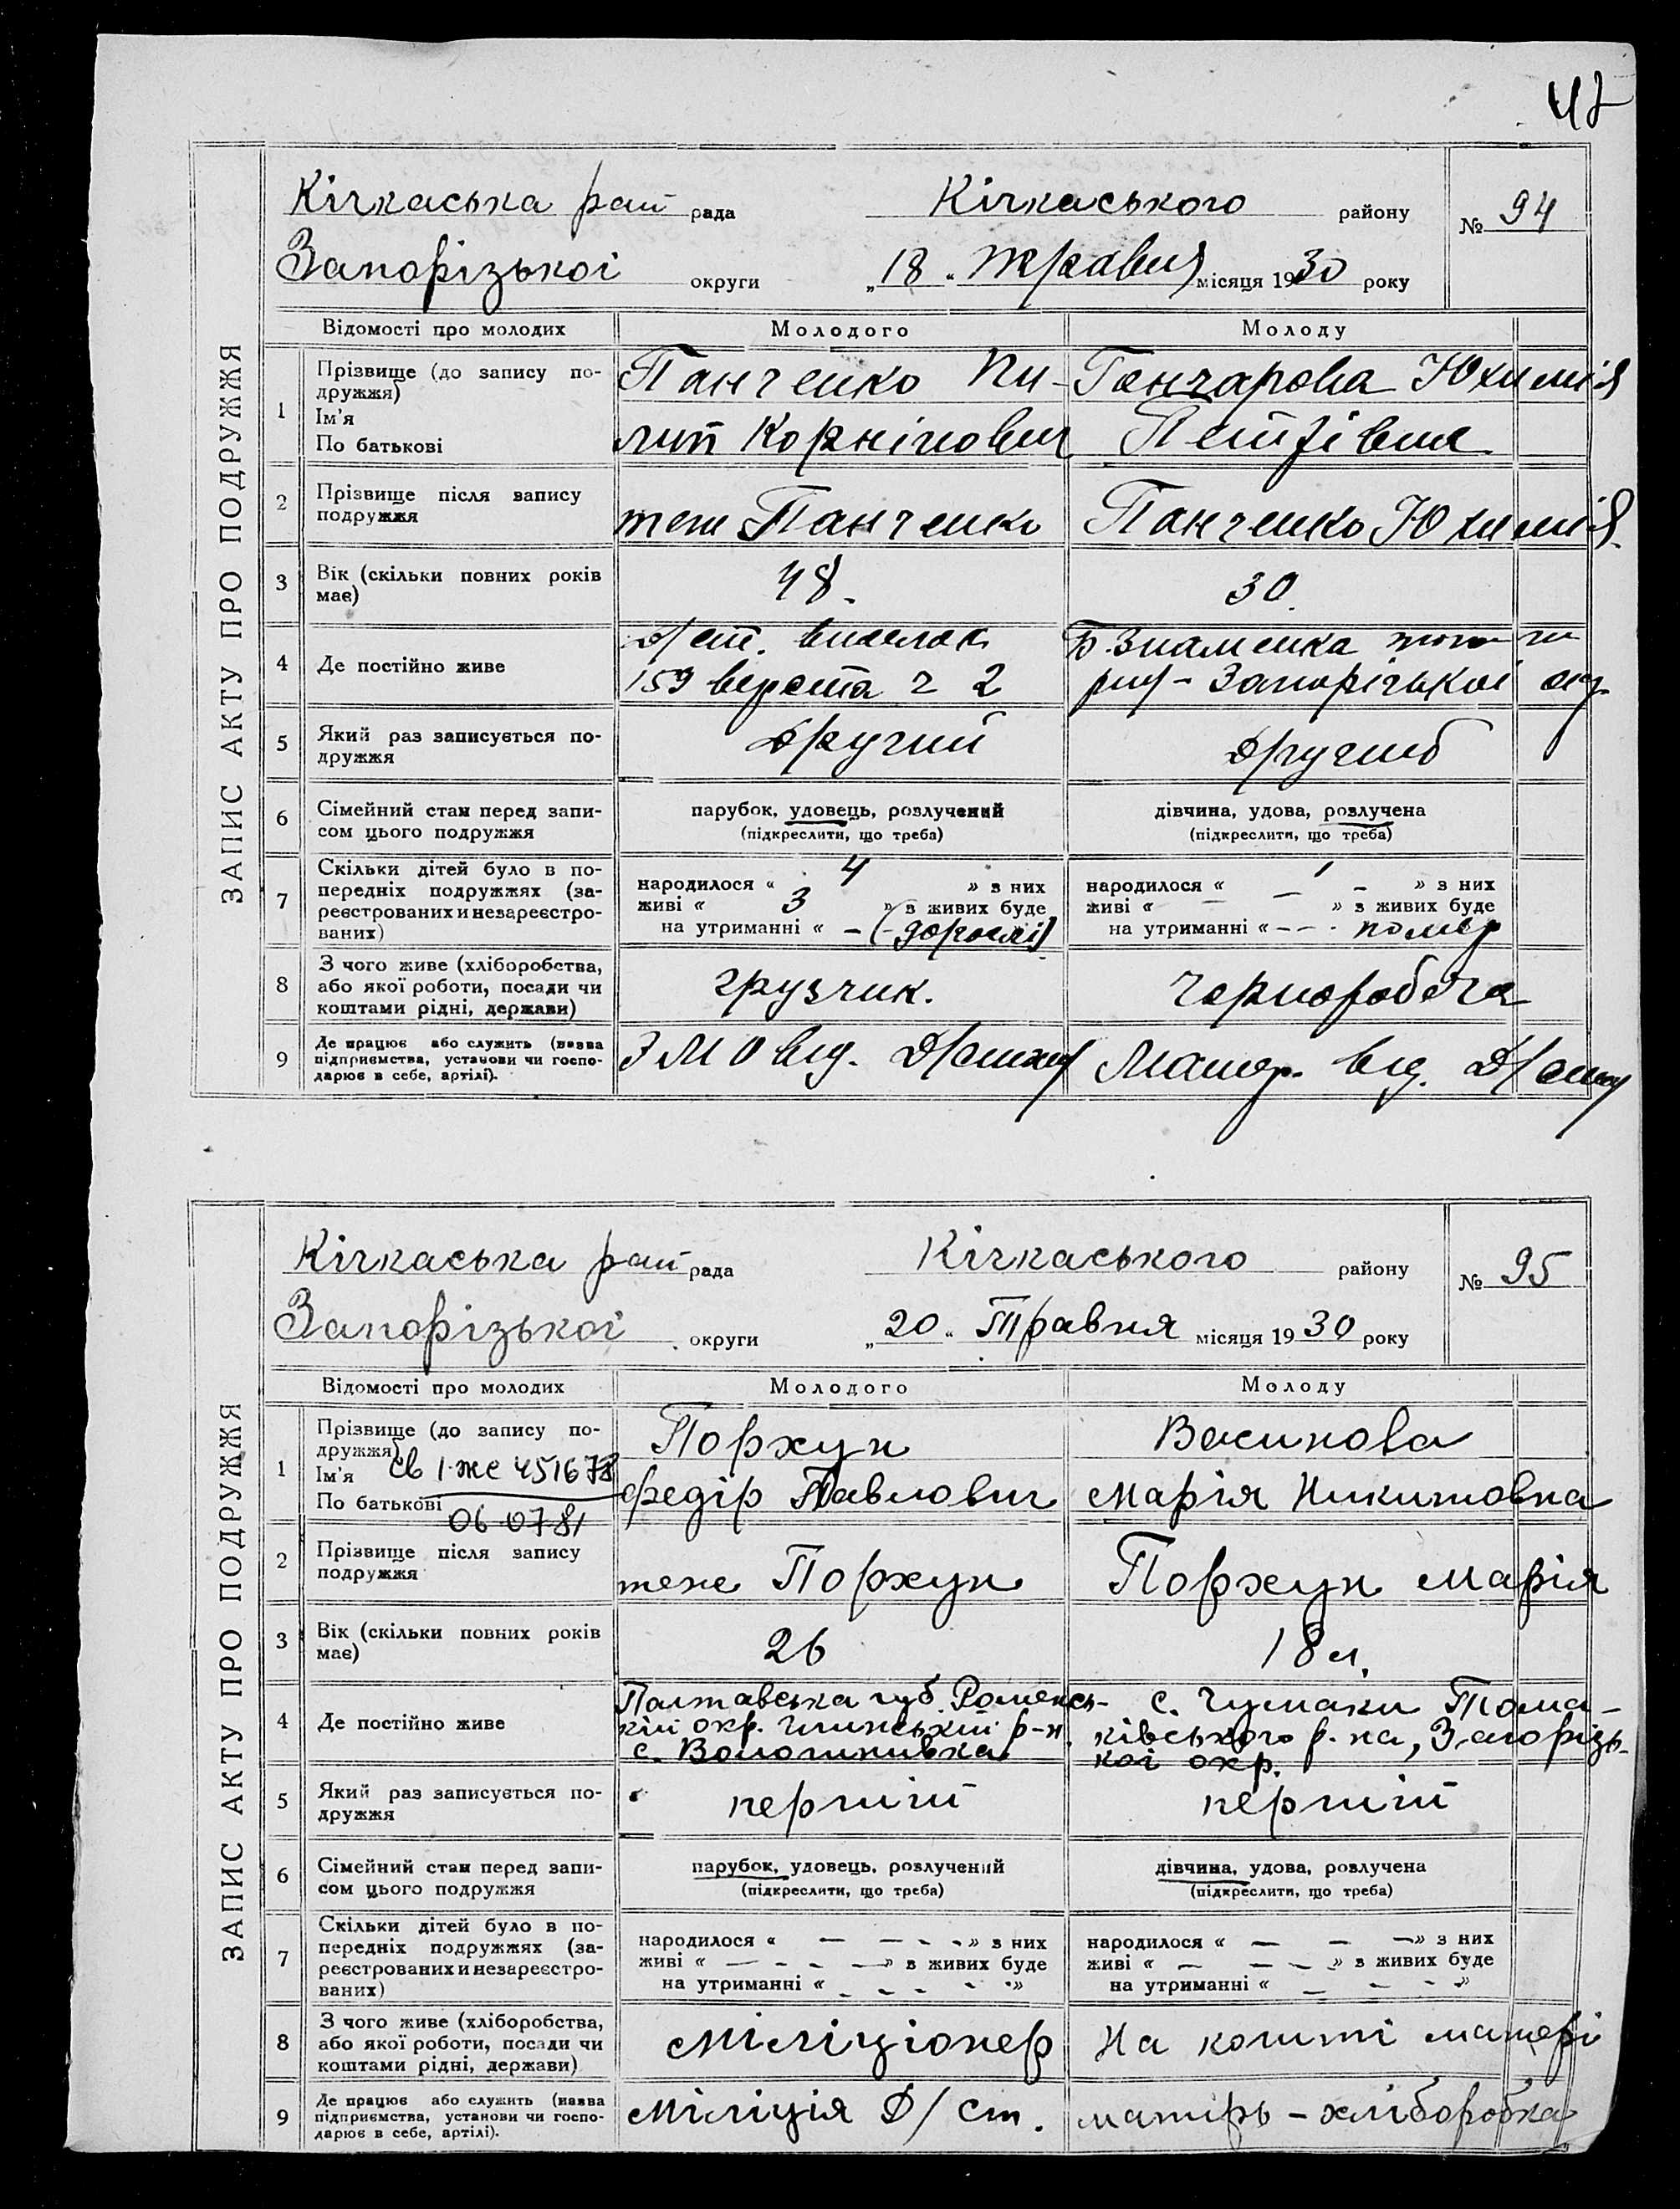 ЗАПИС АКТУ ПРО ПОДРУЖЖЯ
Кічкаська рай рада Кічкаського району № 94
Запорізької округи „18“ травня місяця 1930 року
Відомості про молодих Молодого Молоду
1 Прізвище (до запису по-
дружжя)
Ім'я
По батькові
Панченко Пи-
лип Корнійович
Гончарова Юхимія
Петрівна
2 Прізвище після запису
подружжя
теж Панченко
Панченко Юхимія
3 Вік (скільки повних років
має)
48.
30.
4 Де постійно живе
159 верста ч 2
Б. Знаменка
Запорізької окр.
5 Який раз записується по-
дружжя
Другий
Другий
6 Сімейний стан перед запи-
сом цього подружжя
парубок, удовець, розлучений
(підкреслити, що треба)
дівчина, удова, розлучена
(підкреслити, що треба)
7 Скільки дітей було в по-
передніх подружжях (за-
реєстрованих и незареєстро-
ваних)
народилося « 4 » з них
живі « 3 » з живих буде
на утриманні « – (дорослі)
народилося « 1 – » з них
живі « – – » з живих буде
на утриманні « – – - помер
8 З чого живе (хліборобства,
або якої роботи, посади чи
коштами рідні, держави)
грузчик.
Чорноробоча
9 Де працює або служить (назва
підприємства, установи чи госпо-
дарює в себе, артілі).
від.
від.
ЗАПИС АКТУ ПРО ПОДРУЖЖЯ
Кічкаська рай рада Кічкаського району № 95
Запорізької округи „20“ Травня місяця 1930 року
Відомості про молодих Молодого Молоду
1 Прізвище (до запису по-
дружжя)
Ім'я св I-же 451678
По батькові
06 07 81
Порхун
Федір Павлович
Васинова
Марія Никитовна
2 Прізвище після запису
подружжя
теже Порхун
Порхун Марія
3 Вік (скільки повних років
має)
26
18 л.
4 Де постійно живе
Полтавська губ. Роменсь-
кій окр. Глинській р-н
с.
с. Чумаки Тома-
ківського р-на, Запорізь-
кої окр.
5 Який раз записується по-
дружжя
перший
перший
6 Сімейний стан перед запи-
сом цього подружжя
парубок, удовець, розлучений
(підкреслити, що треба)
дівчина, удова, розлучена
(підкреслити, що треба)
7 Скільки дітей було в по-
передніх подружжях (за-
реєстрованих и незареєстро-
ваних)
народилося « – – - - » з них
живі « – - - – » з живих буде
на утриманні « - - - - - »
народилося « – – – » з них
живі « – – - » з живих буде
на утриманні « – - - - »
8 З чого живе (хліборобства,
або якої роботи, посади чи
коштами рідні, держави)
Міліціонер
На кошті матері
9 Де працює або служить (назва
підприємства, установи чи госпо-
дарює в себе, артілі).
Міліція Д/ст.
матірь – хліборобка